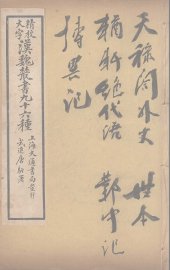 天祿閣外史　姓本
輶軒絕代語　鄴中記
博異記
精校
大字
漢魏叢書九十六種
上海大通書局發行
武進唐駝署